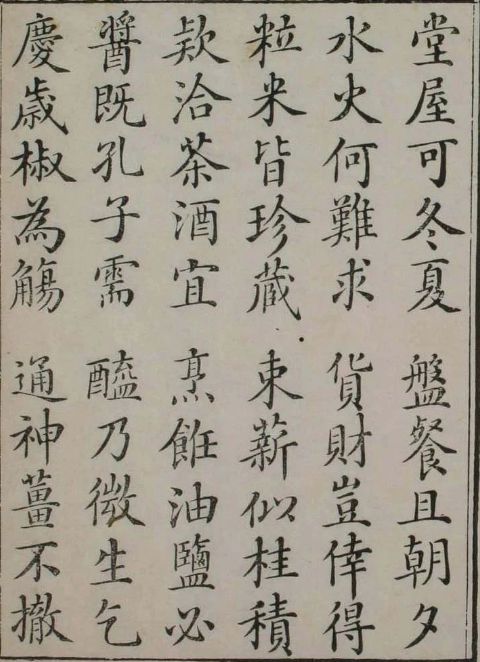 堂屋可冬夏 盤餐且朝夕
水火何難求 貨財豈倖得
粒米皆珍藏 束薪似桂積
款洽茶酒宜 烹飪油鹽必
醬既孔子需 醯乃微生乞
慶歲椒為觴 通神薑不撤